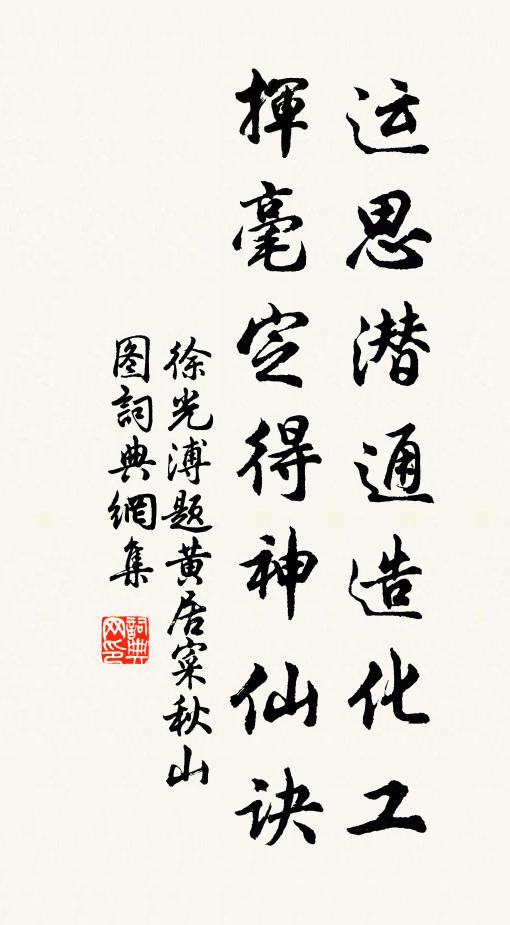 运思潜通造化工
揮毫定得神仙诀
徐光溥题黄居寀秋山
图詞典網集
詞典
网印